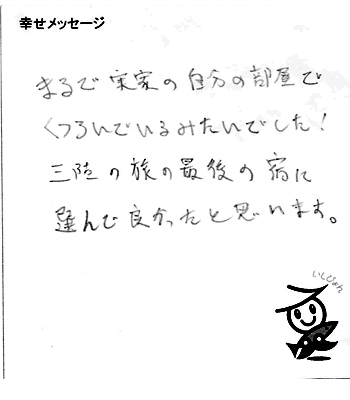 幸せメッセージ
まるで実家の自分の部屋で
くつろいでいるみたいでした!
三陸の旅の最後の宿に
選んで良かったと思います。